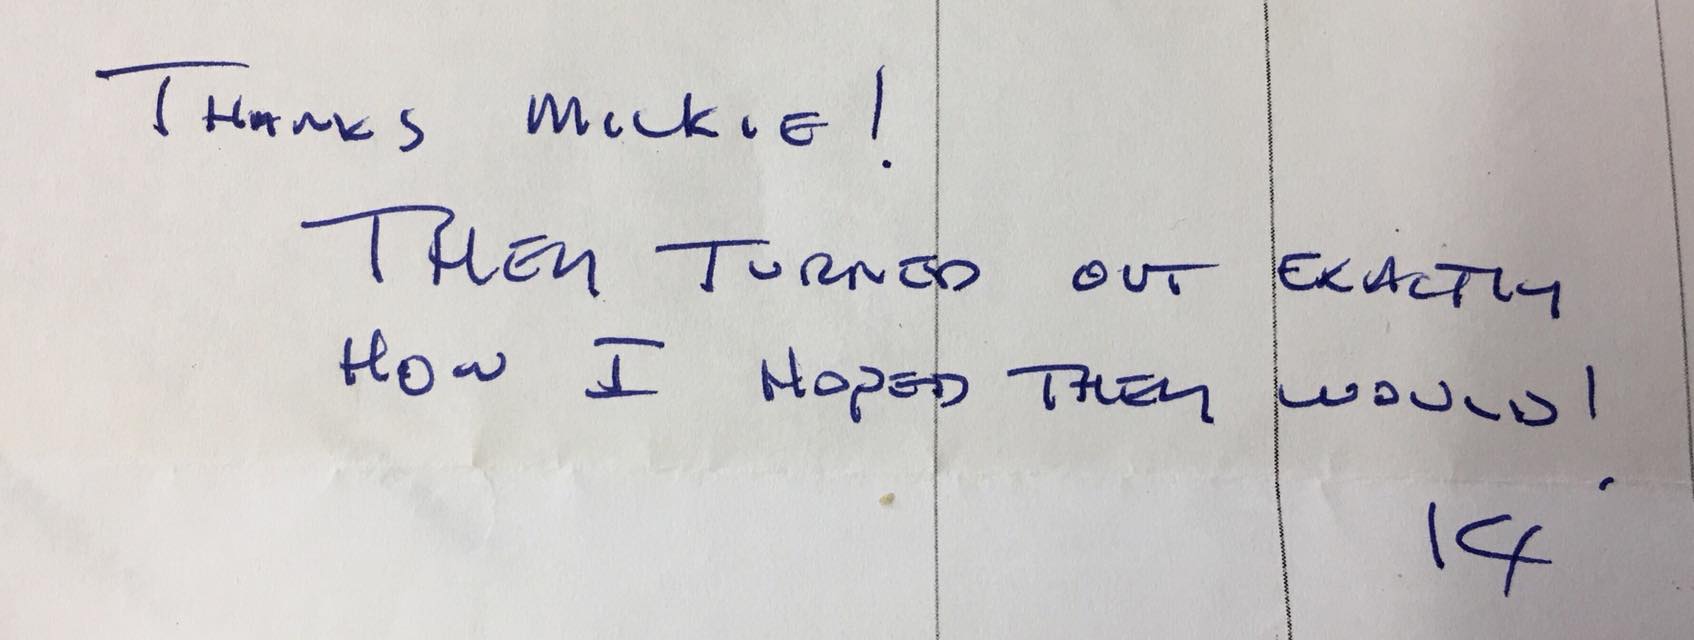 THANKS MICKIE!
THEY TURNED OUT EXACTLY
HOW I HOPED THEY WOULD!